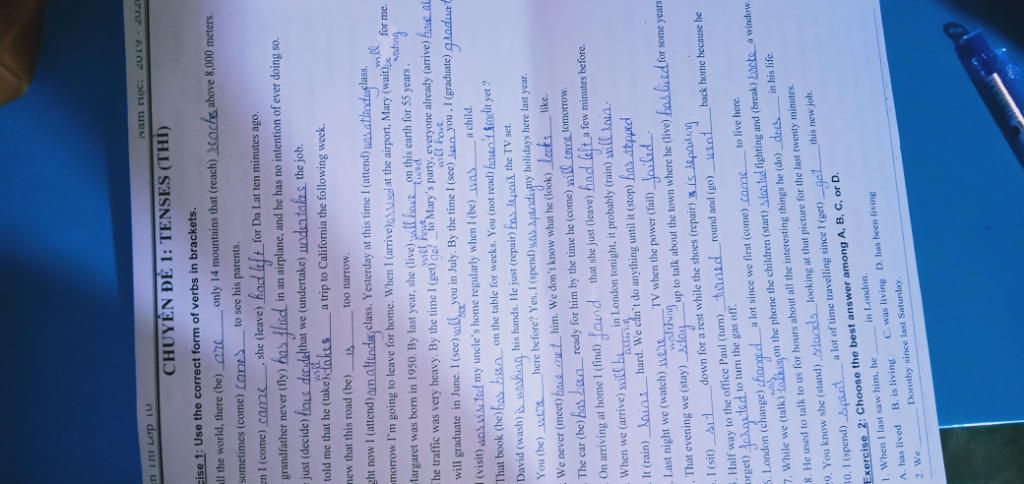 Năm Học: 2019 - 202
CHUYÊN ĐỀ 1: TENSES (THÌ)
cise 1: Use the correct form of verbs in brackets.
all the world, there (be) are only 14 mountains that (reach) reach above 8,000 meters.
sometimes (come) comes to see his parents.
en I (come) came, she (leave) had left for Da Lat ten minutes ago.
grandfather never (fly) has flied in an airplane, and he has no intention of ever doing so.
just (decide) have decided that we (undertake) undertakes the job.
told me that he (take) will takes a trip to California the following week.
new that this road (be) is too narrow.
ght now I (attend) am attending class. Yesterday at this time I (attend) was attending class.
morrow I'm going to leave for home. When I (arrive) arrived at the airport, Mary (wait) will be waiting for me.
Margaret was born in 1950. By last year, she (live) will have lived on this earth for 55 years.
The traffic was very heavy. By the time I (get) got to Mary's party, everyone already (arrive) have
will graduate in June. I (see) will see you in July. By the time I (see) seen you, I (graduate) will have graduat
I (visit) was visited my uncle's home regularly when I (be) was a child.
That book (be) has been on the table for weeks. You (not read) haven't read it yet ?
David (wash) is washing his hands. He just (repair) has repair the TV set.
You (be) were here before? Yes, I (spend) was spending my holidays here last year.
We never (meet) have met him. We don't know what he (look) looks like.
The car (be) has been ready for him by the time he (come) will come tomorrow.
On arriving at home I (find) found that she just (leave) had left a few minutes before.
When we (arrive) will be arriving in London tonight, it probably (rain) will rain.
It (rain) rains hard. We cdn't do anything until it (stop) has stopped
Last night we (watch) were watching TV when the power (fail) failed.
That evening we (stay) stay up to talk about the town where he (live) has lived for some years
I (sit) sit down for a rest while the shoes (repair) is repairing
Half way to the office Paul (turn) turned round and (go) went back home because he
orget) forgeted to turn the gas off.
London (change) changed a lot since we first (come) came to live here.
While we (talk) was talking on the phone the children (start) started fighting and (break) broke a window.
8. He used to talk to us for hours about all the interesting things he (do) does in his life.
9. You know she (stand) stands looking at that picture for the last twenty minutes.
30. I (spend) spent a lot of time travelling since I (get) got this new job.
Exercise 2: Choose the best answer among A, B, C, or D.
1. When I last saw him, he ___ in London.
A. has lived B. is living C. was living D. has been living
2. We ___ Dorothy since last Saturday.